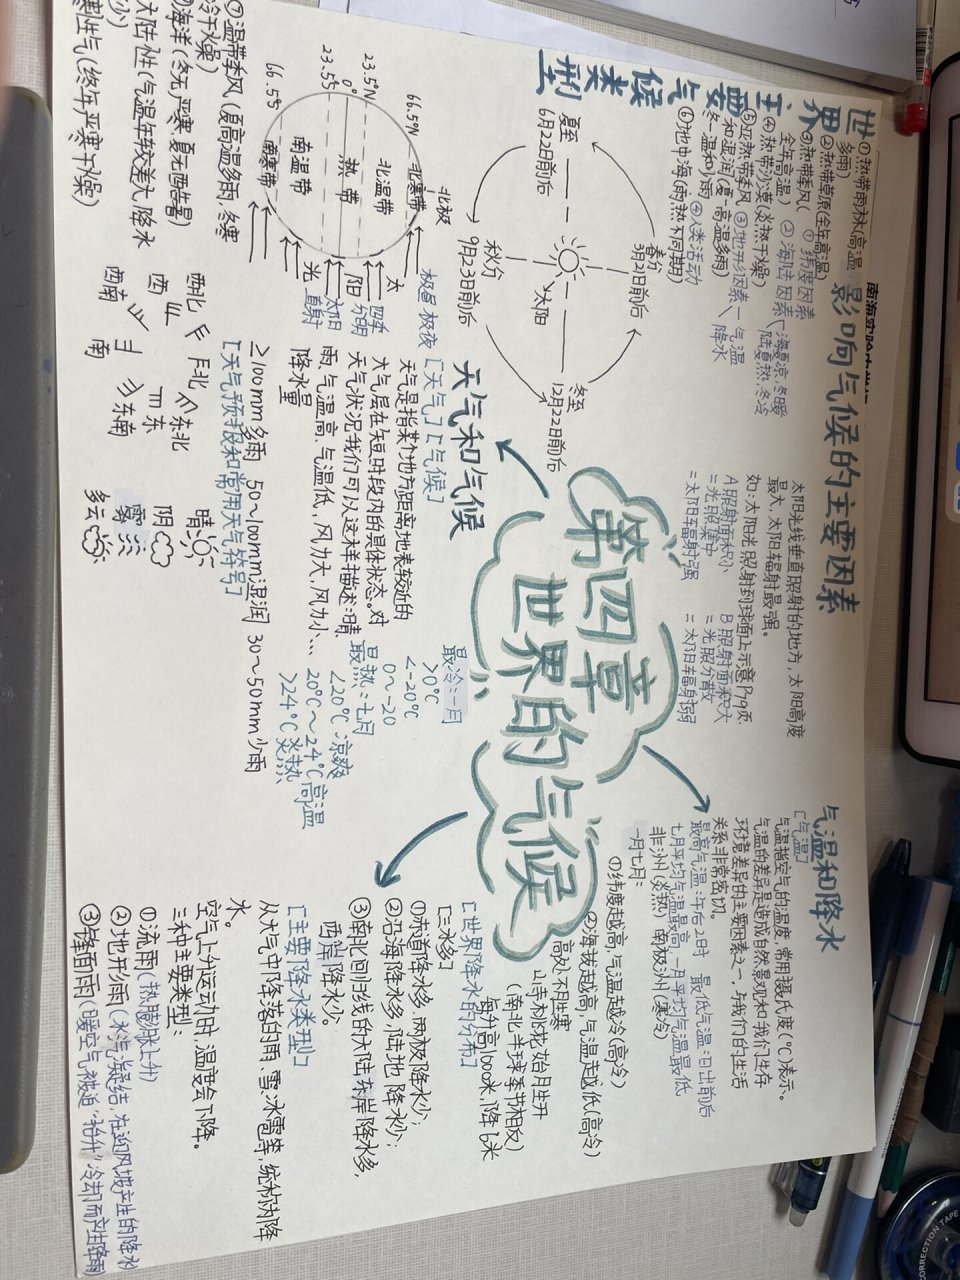 第四章
世界的气候
世界主要气候类型
①热带雨林(高温多雨)
②热带草原(全年高温)
③热带季风(
全年高温)
④热带沙漠(炎热干燥)
⑤亚热带季风
和湿润(夏-高温多雨)
冬-温和少雨
⑥地中海(雨,热不同期)
影响气候的主要因素
①纬度因素
②海陆因素
海夏凉,冬暖
陆夏热,冬冷
③地形因素
气温
降水
④人类活动
太阳光线垂直照射的地方,太阳高度
最大,太阳辐射最强。
如:太阳光照射到球面上示意P79页.
A照射面积小
=光照集中
=太阳辐射强
B照射面积大
=光照分散
=太阳辐射弱
夏至
6月22日前后
春分
3月21日前后
太阳
秋分
9月23日前后
冬至
12月22日前后
北极
66.5°N
23.5°N
0°
23.5°S
66.5°S
北寒带
北温带
热带
南温带
南寒带
极昼极夜
四季分明
太阳光
太阳直射
⑦温带季风(夏高温多雨,冬寒
冷干燥)
海洋(冬无严寒夏无酷暑)
大陆性(气温年较差大,降水
少)
寒性气(终年严寒干燥)
天气和气候
[天气][气候]
天气是指某个地方距离地表较近的
大气层在短时段内的具体状态。对
天气状况我们可以从这样描述:晴、
雨、气温高、气温低,风力大,风力小…
降水量
≥100mm多雨 50~100mm湿润 30~50mm少雨
[天气预报和常用天气符号]
西北
北
东北
西
东
西南
南
东南
晴
阴
雾
多云
最冷:一月
>0℃
<-20℃
0~-20
最热:七月
<20℃凉爽
20℃~24℃高温
>24℃炎热
气温和降水
[气温]
气温指空气的温度,常用摄氏度(℃)表示。
气温的差异是造成自然景观和我们生存
环境差异的主要因素之一,与我们的生活
关系非常密切。
最高气温:午后2时 最低气温:日出前后
七月平均气温最高,一月平均气温最低
非洲(炎热) 南极洲(寒冷)
一月七月:
①纬度越高,气温越冷(高冷)
②海拔越高,气温越低(高冷)
高处不胜寒
山寺桃花始月生开
(南北半球季节相反)
每升高1000米,降6米
[世界降水的分布]
[三水多]
①赤道降水多,两极降水少;
②沿海降水多,陆地降水少;
③南北回归线的大陆东岸降水多,
西岸降水少。
[主要降水类型]
从大气中降落的雨、雪、冰雹等,统称为降
水。
空气上升运动时,温度会下降。
三种主要类型:
①流雨(热膨胀上升)
②地形雨(水汽凝结,在迎风坡产生的降水)
③锋面雨(暖空气被迫"抬升"冷却而产生降雨)
CORRECTION TAPE